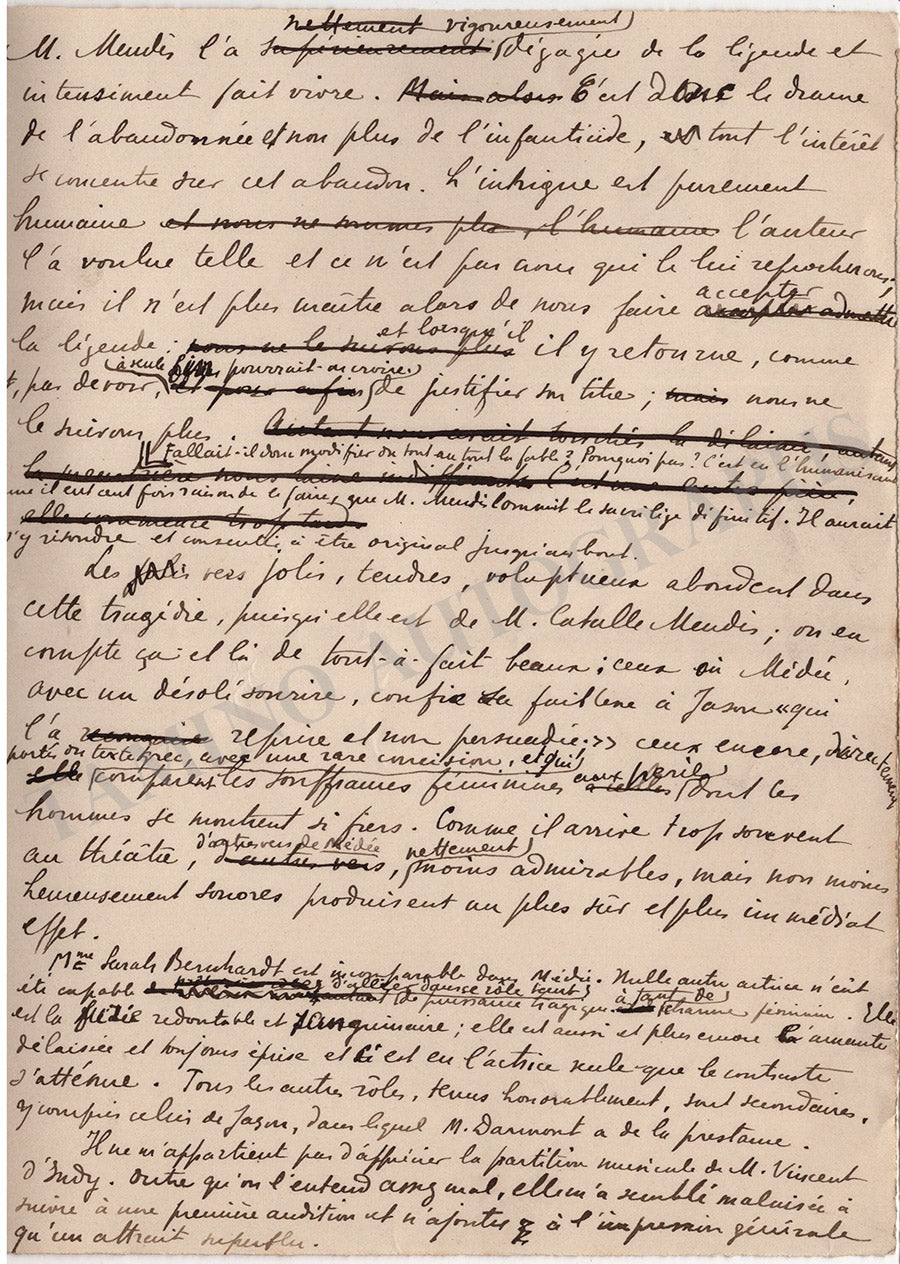 nettement vigoureusement
M. Mendès l'a supérieurement dégagée de la légende et
intensément fait vivre. Mais alors C'est donc le drame
de l'abandonnée et non plus de l'infanticide, tout l'intérêt
se concentre sur cet abandon. L'intrigue est purement
humaine et nous ne sommes plus l'humaine l'auteur
l'a voulue telle et ce n'est pas nous qui le lui reprocherons;
accepter
mais il n'est plus maître alors de nous faire accepter admettre
et lorsqu'il
la légende; nous ne le suivons plus il y retourne, comme
à seule fin, pourrait-on croire,
par devoir, et pour enfin de justifier son titre; mais nous ne
le suivons plus. Autant nous avait touchés la délaissée, autant
Fallait-il donc modifier du tout au tout la fable? Pourquoi pas? C'est en l'humanisant
la meurtrière nous laisse indifférents. C'est une autre pièce,
me il eut cent fois raison de le faire, que M. Mendès commit le sacrilège définitif. Il aurait
elle commence trop tard
s'y résoudre et consentir à être original jusqu'au bout.
Les jolis vers jolis, tendres, voluptueux abondent dans
cette tragédie, puisqu'elle est de M. Catulle Mendès; on en
compte ça et là de tout-à-fait beaux; ceux où Médée,
avec un désolé sourire, confie sa faiblesse à Jason «qui
l'a reconquise reprise et non persuadée;» ceux encore, directement
portés du texte grec, avec une rare concision, et qui
elle comparent les souffrances féminines à celles aux périls dont les
hommes se montrent si fiers. Comme il arrive trop souvent
d'autres vers de Médée nettement
au théâtre, d'autres vers, moins admirables, mais non moins
heureusement sonores produisent un plus sûr et plus immédiat
effet.
Mme Sarah Bernhardt est incomparable dans Médée. Nulle autre actrice n'eût
d'allier dans ce rôle tant
été capable autant de puissance tragique à tant de charme féminin. Elle
est la furie redoutable et sanguinaire; elle est aussi et plus encore l'amante
délaissée et toujours éprise et c'est en l'actrice seule que le contraste
s'atténue. Tous les autres rôles, tenus honorablement, sont secondaires,
y compris celui de Jason, dans lequel M. Darmont a de la prestance.
Il ne m'appartient pas d'apprécier la partition musicale de M. Vincent
d'Indy. Outre qu'on l'entend assez mal, elle m'a semblé malaisée à
suivre à une première audition et n'ajouter à l'impression générale
qu'un attrait superflu.
TAMINO AUTOGRAPHS